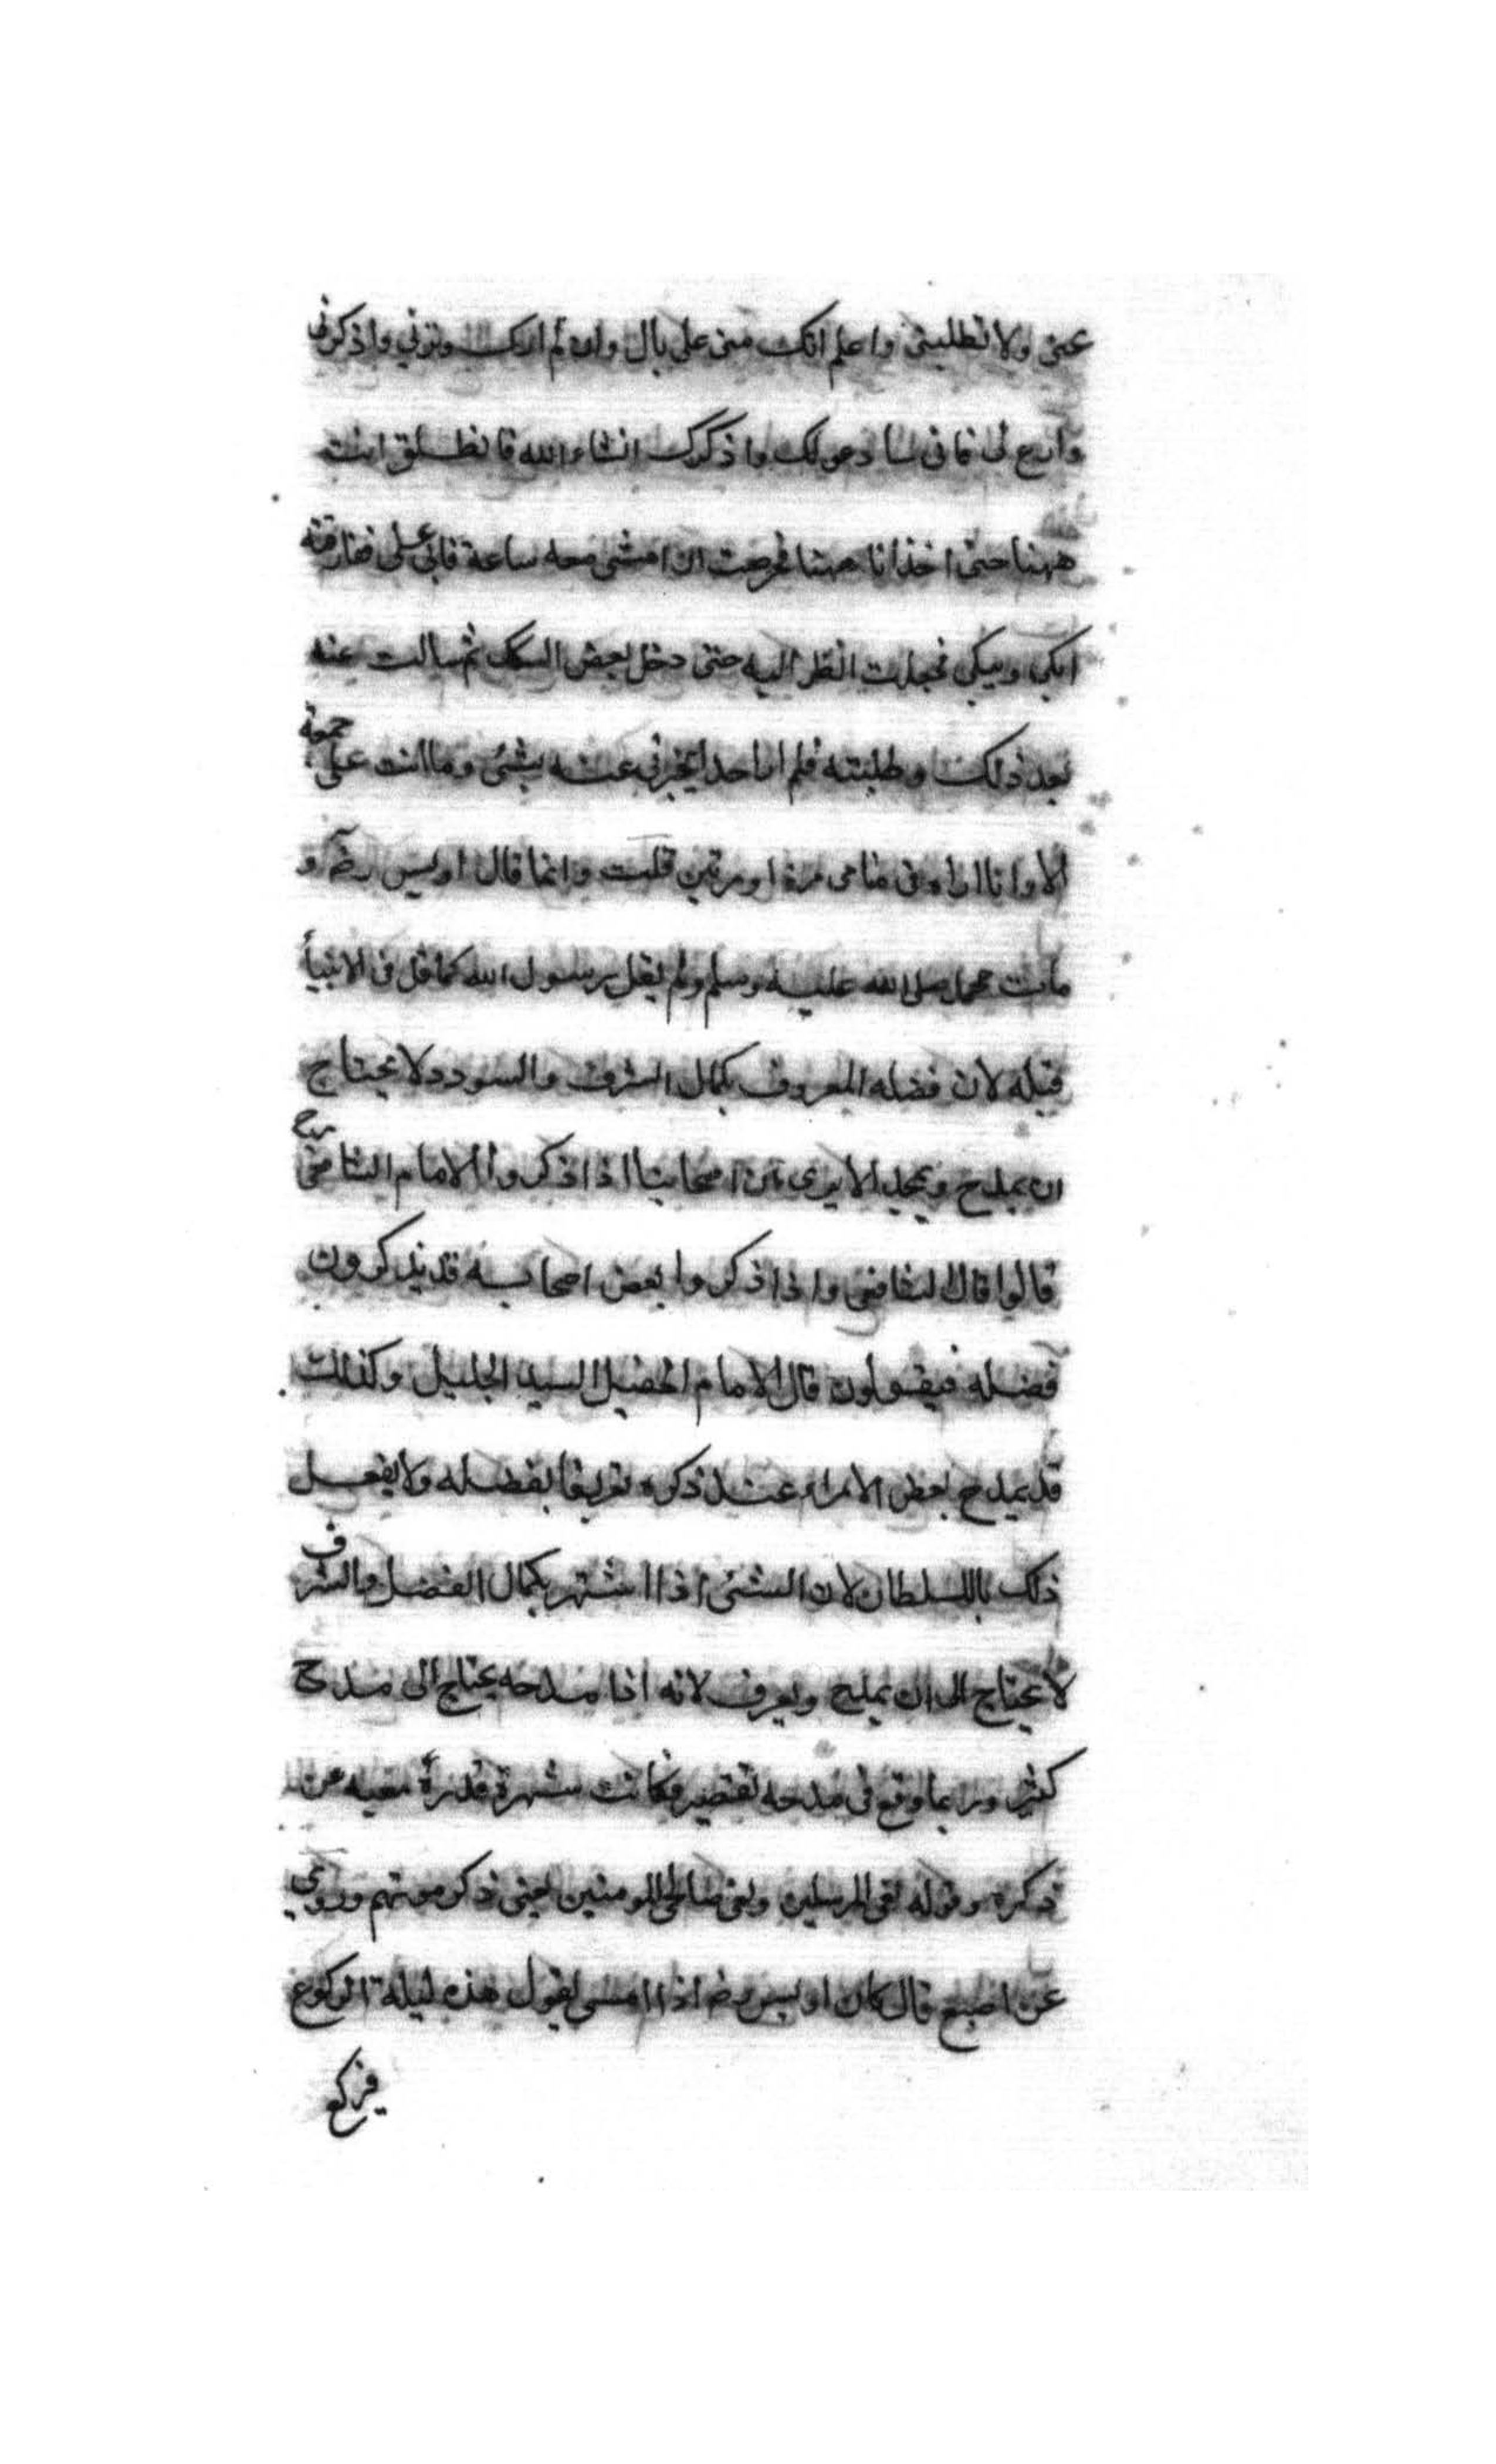 عنى ولا تطلبنى واعلم انك منى على بال وان لم ارك وترنى واذكرنى
وادع لى فانى سادعو لك واذكرك انشاء الله فانطلق انت
ههنا حتى اخذ انا ههنا فحرصت ان امشى معه ساعة فابى على ففارقته
ابكى ويبكى فجعلت انظر اليه حتى دخل بعض السكك ثم سالت عنه
بعد ذلك وطلبته فلم ار احدا يخبرنى عنه بشئ وما اتت على جمعة
الا وانا اراه فى منامى مرة او مرتين قلت وانما قال اويس رضه و
مات محمد صلى الله عليه وسلم ولم يقل رسول الله كما قال فى الانبيأ
قبله لان فضله المعروف بكمال الشرف والسودد لا يحتاج
ان يمدح ويمجد الا يرى ان اصحابنا اذا ذكروا الامام الشافعى رح
قالوا قال الشافعى واذا ذكروا بعض اصحابه قد يذكرون
فضله فيقولون قال الامام السيد الجليل وكذلك
قد يمدح بعض الامراء عند ذكره تعريفا بفضله ولا يفعل
ذلك بالسلطان لان الشئ اذا اشتهر بكمال الفضل والشرف
لا يحتاج الى ان يمدح ويعرف لانه اذا مدحه يحتاج الى مدح
كثير وربما وقع فى مدحه تقصير فكانت شهرة قدره مغنيه عن
ذكره وقوله نعى المرسلين ونعى صالحى المومنين يعنى ذكر موتهم وروى
عن اصبغ قال كان اويس رضه اذا امسى يقول هذه ليلة الركوع
فيركع